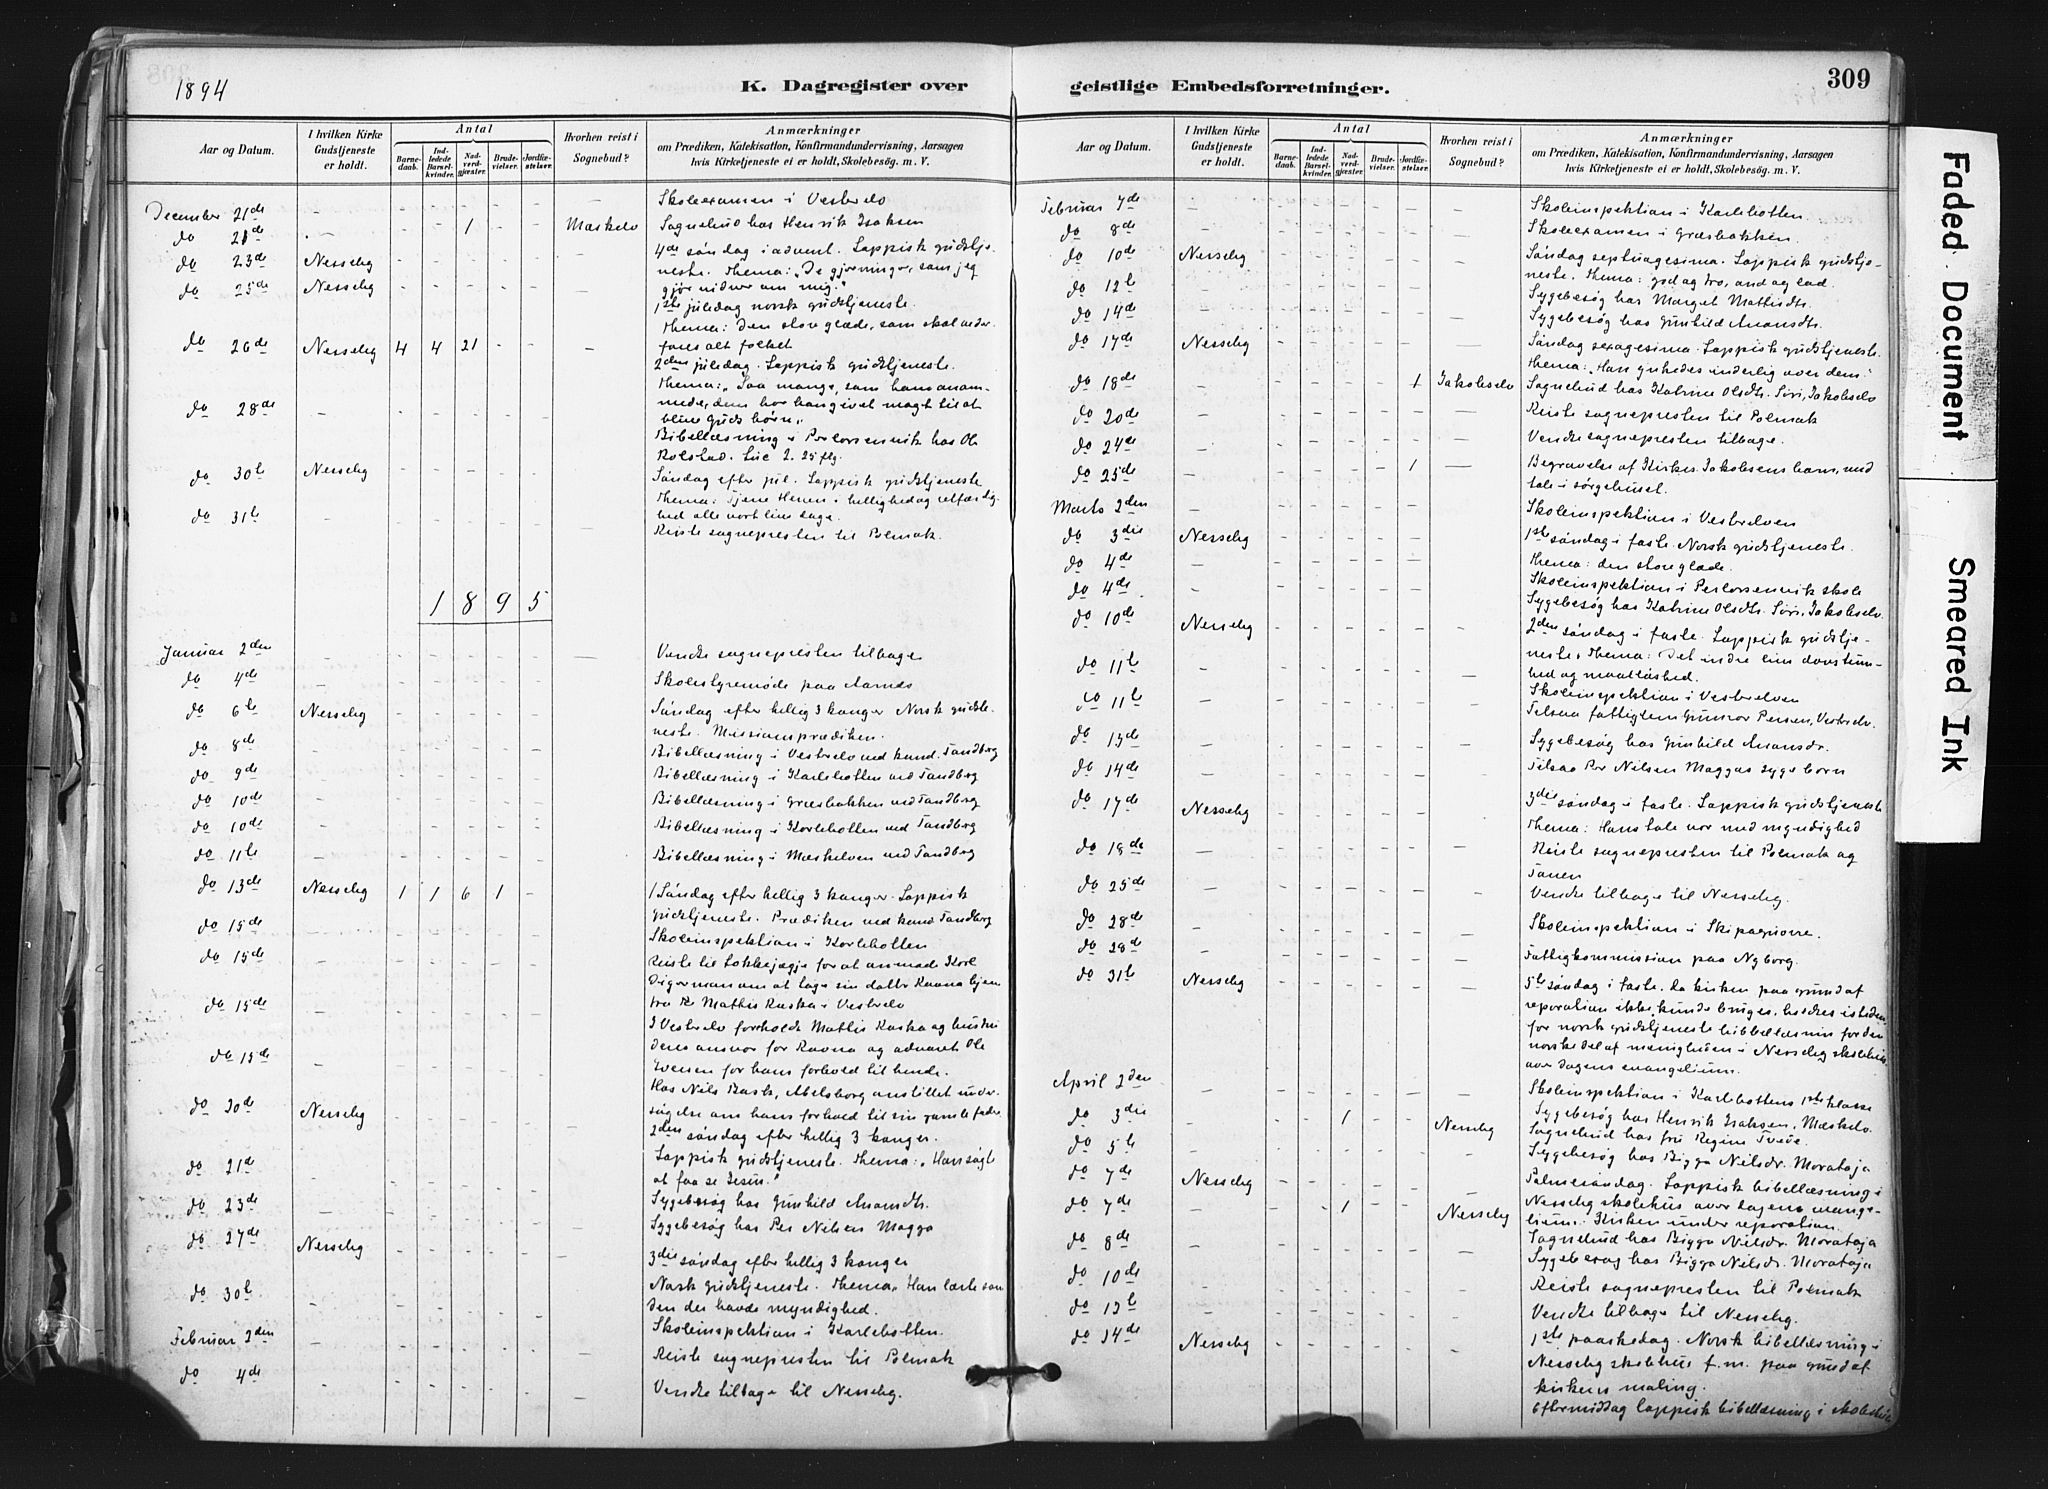 1894
K. Dagregister over
geistlige Embedsforretninger.
309
Aar og Datum.
I hvilken Kirke Gudstjeneste er holdt.
Antal
Barnedaab.
Indledede Barselkvinder.
Nadverdgjæster.
Brudevielser.
Jordfæstelser.
Hvorhen reist i Sognebud?
Anmærkninger
om Prædiken, Katekisation, Konfirmandundervisning, Aarsagen
hvis Kirketjeneste ei er holdt, Skolebesøg. m. V.
December 21de Skoleexamen i Vesterelv
do 21de 1 Mæskelv Sognebud hos Henrik Isaksen
do 23de Nesseby 4de søndag i advent. Lappisk gudstje-
neste. Thema: "De gjerninger, som jeg
gjør vidner om mig."
do 25de Nesseby 1ste juledag norsk gudstjeneste.
Thema: Den store glæde, som skal veder-
fares alt folket
do 26de Nesseby 4 4 21 2den juledag. Lappisk gudstjeneste.
Thema: "Saa mange, som ham anam-
mede, dem har han givet magt til at
blive Guds børn."
do 28de Bibellæsning i Perlorsenvik hos Ole
Rolstad. Luc 2. 25 flg.
do 30te Nesseby Søndag efter jul. Lappisk gudstjeneste
Thema: Tjene Herren i hellighed og retfærdig-
hed alle vort livs dage.
do 31te Reiste sognepresten til Polmak.
1895
Januar 2den Vendte sognepresten tilbage
do 4de Skolestyremøde paa Aarnes
do 6te Nesseby Søndag efter hellig 3 konger Norsk gudstje-
neste. Missionsprædiken.
do 8de Bibellæsning i Vesterelv ved kand. Tandberg
do 9de Bibellæsning i Karlebotten ved Tandberg
do 10de Bibellæsning i Græsbakken ved Tandberg
do 10de Bibellæsning i Karlebotten ved Tandberg
do 11te Bibellæsning i Mæskelven ved Tandberg
do 13de Nesseby 1 1 6 1 1 Søndag efter hellig 3 konger. Lappisk
gudstjeneste. Prædiken ved kand. Tandberg
do 15de Skoleinspektion i Karlebotten
do 15de Reiste til for at anmode Karl
Digerman om at tage sin datter Ravna hjem
fra Mathis Kaska i Vesterelv
do 15de I Vesterelv forholdt Mathis Kaska og hustru
deres ansvar for Ravna og advaret Ole
Evensen for hans forhold til hende.
do 15de Hos Nils Bask, Abelsborg anstillet under-
søgelse om hans forhold til sin gamle fader.
do 20de Nesseby 2den søndag efter hellig 3 konger.
Lappisk gudstjeneste. Thema: "Han søgte
at faa se Jesus."
do 21de Sygebesøg hos Gunhild Amandtr.
do 23de Sygebesøg hos Per Nilsen Magga
do 27de Nesseby 3die søndag efter hellig 3 konger
Norsk gudstjeneste. Thema "Han lærte som
den der havde myndighed.
do 30te Skoleinspektion i Karlebotten.
Februar 2den Reiste sognepresten til Polmak
do 4de Vendte tilbage til Nesseby.
Aar og Datum.
I hvilken Kirke Gudstjeneste er holdt.
Antal
Barnedaab.
Indledede Barselkvinder.
Nadverdgjæster.
Brudevielser.
Jordfæstelser.
Hvorhen reist i Sognebud?
Anmærkninger
om Prædiken, Katekisation, Konfirmandundervisning, Aarsagen
hvis Kirketjeneste ei er holdt, Skolebesøg. m. V.
Februar 7de Skoleinspektion i Karlebotten.
do 8de Skoleexamen i Græsbakken.
do 10de Nesseby Søndag septuagesima. Lappisk gudstje-
neste. Thema: god og tro, ond og lad.
do 12te Sygebesøg hos Marget Mathisdtr.
do 14de Sygebesøg hos Gunhild Amandtr.
do 17de Nesseby Søndag sexagesima. Lappisk gudstjeneste.
Thema: "Han ynkedes inderlig over dem."
do 18de 1 Jakobselv Sognebud hos Katrine Olsdtr. Siri, Jakobselv
do 20de Reiste sognepresten til Polmak
do 24de Vendte sognepresten tilbage.
do 25de 1 Begravelse af Jakobsens barn, med
tale i sørgehuset.
Marts 2den Skoleinspektion i Vesterelven
do 3die Nesseby 1ste søndag i faste. Norsk gudstjeneste.
Thema: den store glæde.
do 4de Skoleinspektion i Perlorsenvik skole
do 4de Sygebesøg hos Katrine Olsdtr. Siri, Jakobselv
do 10de Nesseby 2den søndag i faste. Lappisk gudstje-
neste. Thema: Det indre livs dovstum-
hed og maalløshed.
do 11te Skoleinspektion i Vesterelven
do 11te Tilsaa fattiglem Gunnor Persen, Vesterelv.
do 13de Sygebesøg hos Gunhild Amansdr.
do 14de Tilsaa Per Nilsen Maggas syge børn
do 17de Nesseby 3die søndag i faste. Lappisk gudstjeneste
Thema: Hans tale var med myndighed
do 18de Reiste sognepresten til Polmak og
Tanen
do 25de Vendte tilbage til Nesseby.
do 28de Skoleinspektion i Skipagurra.
do 28de Fattigkommission paa Nyborg.
do 31te Nesseby 5te søndag i faste. Da kirken paa grund af
reparation ikke kunde bruges, holdtes istedenfor
for norsk gudstjeneste bibellæsning for den
norske del af menigheden i Nesseby skolehus
over dagens evangelium.
April 2den Skoleinspektion i Karlebottens 1ste klasse
do 3die 1 Nesseby Sygebesøg hos Henrik Isaksen, Mæskelv.
Sognebud hos fru Regine Tveie.
do 5te Sygebesøg hos Bigga Nilsdr. Morataja
do 7de Nesseby Palmesøndag. Lappisk bibellæsning i
Nesseby skolehus over dagens evange-
lium. Kirken under reparation.
do 7de 1 Nesseby Sognebud hos Bigga Nilsdr. Morataja
do 8de Sygebesøg hos Bigga Nilsdr. Morataja
do 10de Reiste sognepresten til Polmak
do 13te Vendte tilbage til Nesseby.
do 14de Nesseby 1ste paaskedag. Norsk bibellæsning i
Nesseby skolehus f.m. paa grund af
kirkens maling.
Eftermiddag lappisk bibellæsning i skolehus
Faded Document
Smeared Ink